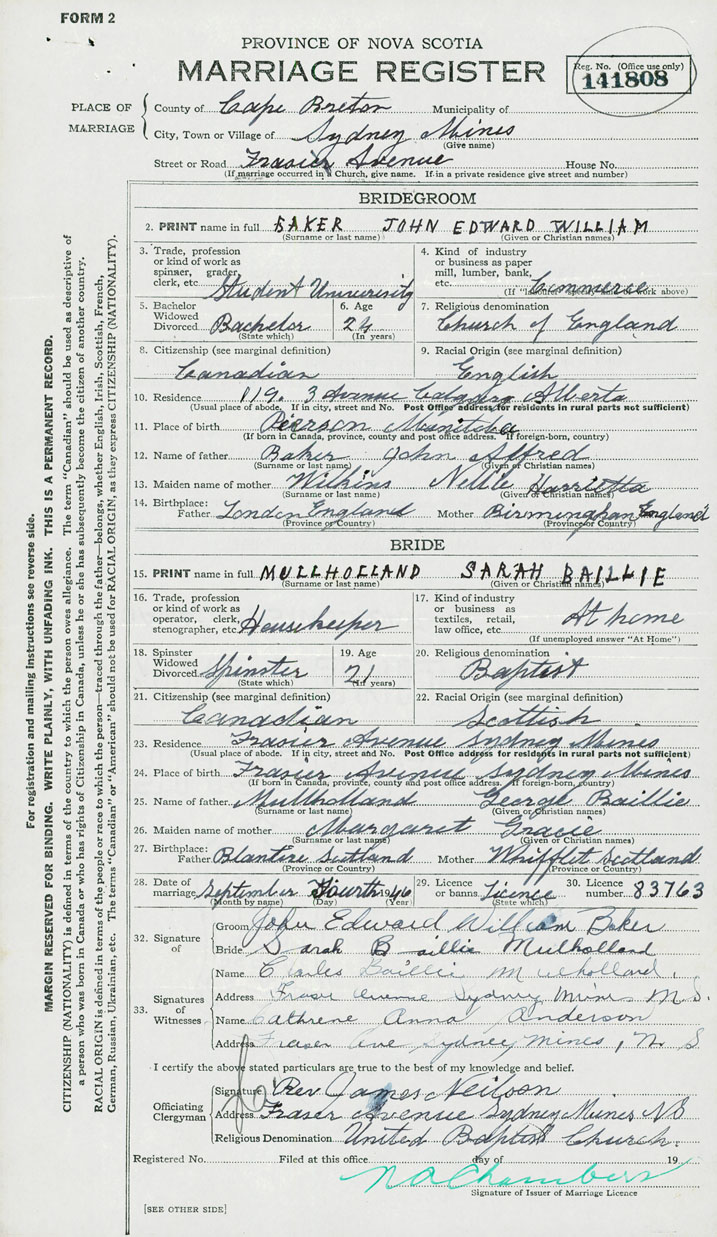 FORM 2
PROVINCE OF NOVA SCOTIA
MARRIAGE REGISTER
Reg. No. (Office use only)
141808
PLACE OF MARRIAGE
County of Cape Breton Municipality of
City, Town or Village of Sydney Mines
(Give name)
Street or Road Frasier Avenue House No.
(If marriage occurred in Church, give name. If in a private residence give street and number)
BRIDEGROOM
2. PRINT name in full BAKER JOHN EDWARD WILLIAM
(Surname or last name) (Given or Christian names)
3. Trade, profession or kind of work as spinner, grader, clerk, etc. Student University
4. Kind of industry or business as paper mill, lumber, bank, etc. Commerce
5. Bachelor Widowed Divorced Bachelor
(State which)
6. Age 24
(In years)
7. Religious denomination
Church of England
8. Citizenship (see marginal definition)
Canadian
9. Racial Origin (see marginal definition)
English
10. Residence 119. 3 Avenue Calgary Alberta
(Usual place of abode. If in city, street and No. Post Office address for residents in rural parts not sufficient)
11. Place of birth Pierson Manitoba
(If born in Canada, province, county and post office address. If foreign-born, country)
12. Name of father Baker John Alfred
(Surname or last name) (Given or Christian names)
13. Maiden name of mother Wilkins Nellie Harrietta
(Surname or last name) (Given or Christian names)
14. Birthplace: Father London England Mother Birminghan England
(Province or Country) (Province or Country)
BRIDE
15. PRINT name in full MULLHOLLAND SARAH BAILLIE
(Surname or last name) (Given or Christian names)
16. Trade, profession or kind of work as operator, clerk, stenographer, etc. Housekeeper
17. Kind of industry or business as textiles, retail, law office, etc. At home
(If unemployed answer "At Home")
18. Spinster Widowed Divorced Spinster
(State which)
19. Age 21
(In years)
20. Religious denomination
Baptist
21. Citizenship (see marginal definition)
Canadian
22. Racial Origin (see marginal definition)
Scottish
23. Residence Frasier Avenue Sydney Mines
(Usual place of abode. If in city, street and No. Post Office address for residents in rural parts not sufficient)
24. Place of birth Frasier Avenue Sydney Mines
(If born in Canada, province, county and post office address. If foreign-born, country)
25. Name of father Mullholland George Baillie
(Surname or last name) (Given or Christian names)
26. Maiden name of mother Margaret Gracie
(Surname or last name) (Given or Christian names)
27. Birthplace: Father Blantire Scotland Mother Whifflet Scotland
(Province or Country) (Province or Country)
28. Date of marriage September Fourth 1946
(Month by name) (Day) (Year)
29. Licence or banns. Licence
(State which)
30. Licence number 83763
32. Signature of
Groom John Edward William Baker
Bride Sarah Baillie Mulholland
33. Signatures of Witnesses
Name Charles Baillie Mulholland.
Address Fraser Avenue Sydney Mines N.S.
Name Cathrene Anna Anderson
Address Fraser Ave Sydney Mines, N. S
I certify the above stated particulars are true to the best of my knowledge and belief.
Officiating Clergyman
Signature Rev James Neilson
Address Fraser Avenue Sydney Mines NS
Religious Denomination United Baptist Church.
Registered No. Filed at this office day of 19
N A Chambers
Signature of Issuer of Marriage Licence
[SEE OTHER SIDE]
For registration and mailing instructions see reverse side.
MARGIN RESERVED FOR BINDING. WRITE PLAINLY, WITH UNFADING INK. THIS IS A PERMANENT RECORD.
CITIZENSHIP (NATIONALITY) is defined in terms of the country to which the person owes allegiance. The term "Canadian" should be used as descriptive of
a person who was born in Canada or who has rights of Citizenship in Canada, unless he or she has subsequently become the citizen of another country.
RACIAL ORIGIN is defined in terms of the people or race to which the person—traced through the father—belongs, whether English, Irish, Scottish, French,
German, Russian, Ukrainian, etc. The terms "Canadian" or "American" should not be used for RACIAL ORIGIN, as they express CITIZENSHIP (NATIONALITY).